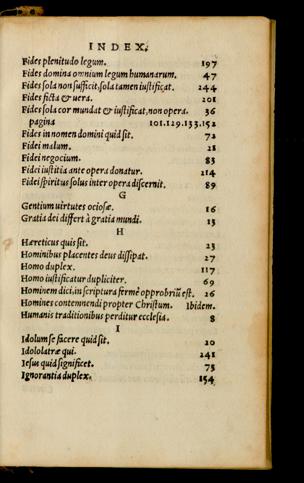 INDEX.
Fides plenitudo legum. 197
Fides domina omnium legum humanarum. 47
Fides sola non sufficit, sola tamen iustificat. 244
Fides ficta & uera. 201
Fides sola cor mundat & iustificat, non opera. 36
pagina 101.129.133.152
Fides in nomen domini quid sit. 72
Fidei malum. 21
Fidei negocium. 83
Fidei iustitia ante opera donatur. 214
Fidei spiritus solus inter opera discernit. 89
G
Gentium uirtutes ociosæ. 16
Gratia dei differt à gratia mundi. 13
H
Hæreticus quis sit. 23
Hominibus placentes deus dissipat. 27
Homo duplex. 117
Homo iustificatur dupliciter. 69
Hominem dici, in scriptura fermè opprobriũ est. 26
Homines contemnendi propter Christum. Ibidem.
Humanis traditionibus perditur ecclesia. 8
I
Idolum se facere quid sit. 20
Idololatræ qui. 241
Iesus quid significet. 73
Ignorantia duplex. 154